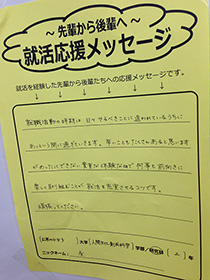 ～先輩から後輩へ～
就活応援メッセージ
就活を経験した先輩から後輩たちへの応援メッセージです。
就職活動の時期は、日々やるべきことに追われているうちに
あっという間に過ぎていきます。辛いこともたくさんあると思います
がめったにできない貴重な体験なので何事も前向きに
楽しく取り組むことが就活を充実させるコツです。
頑張ってください。
大学
人間文化創成科学
学部/研究科
年
ニックネーム